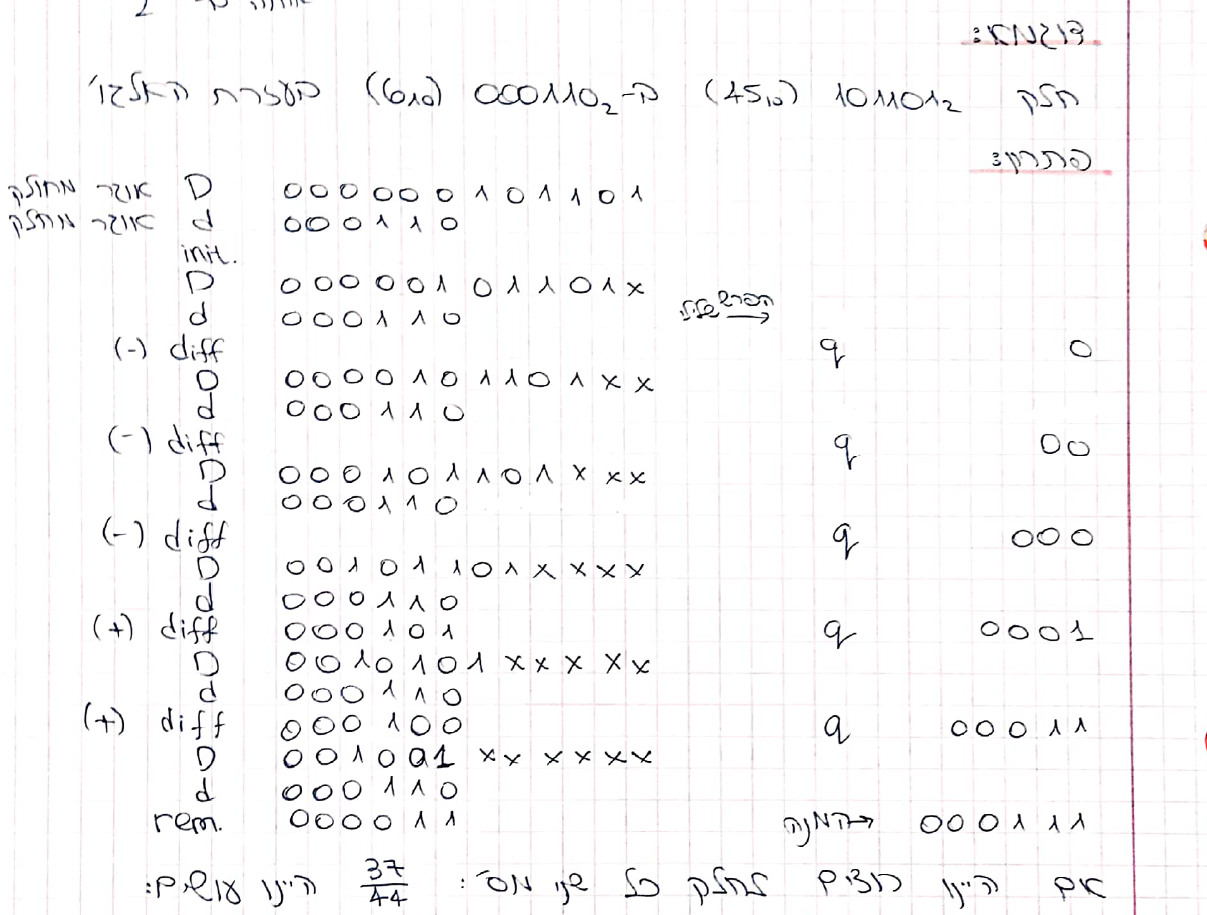 דוגמא:
חלק 101101₂ (45₁₀) ב-000110₂ (6₁₀) בעזרת האלגו'
פתרון:
אוגר מחולק D 000000101101
אוגר מחלק d 000110
init.
D 00000101101x
d 000110
הפרש שלילי →
(-) diff q 0
D 0000101101xx
d 000110
(-) diff q 00
D 000101101xxx
d 000110
(-) diff q 000
D 00101101xxxx
d 000110
(+) diff 000101 q 0001
D 0010101xxxxx
d 000110
(+) diff 000100 q 00011
D 001001xxxxxx
d 000110
rem. 000011 המנה→ 000111
אם היינו רוצים לחלק כל שני מס': 37/44 היינו עושים: